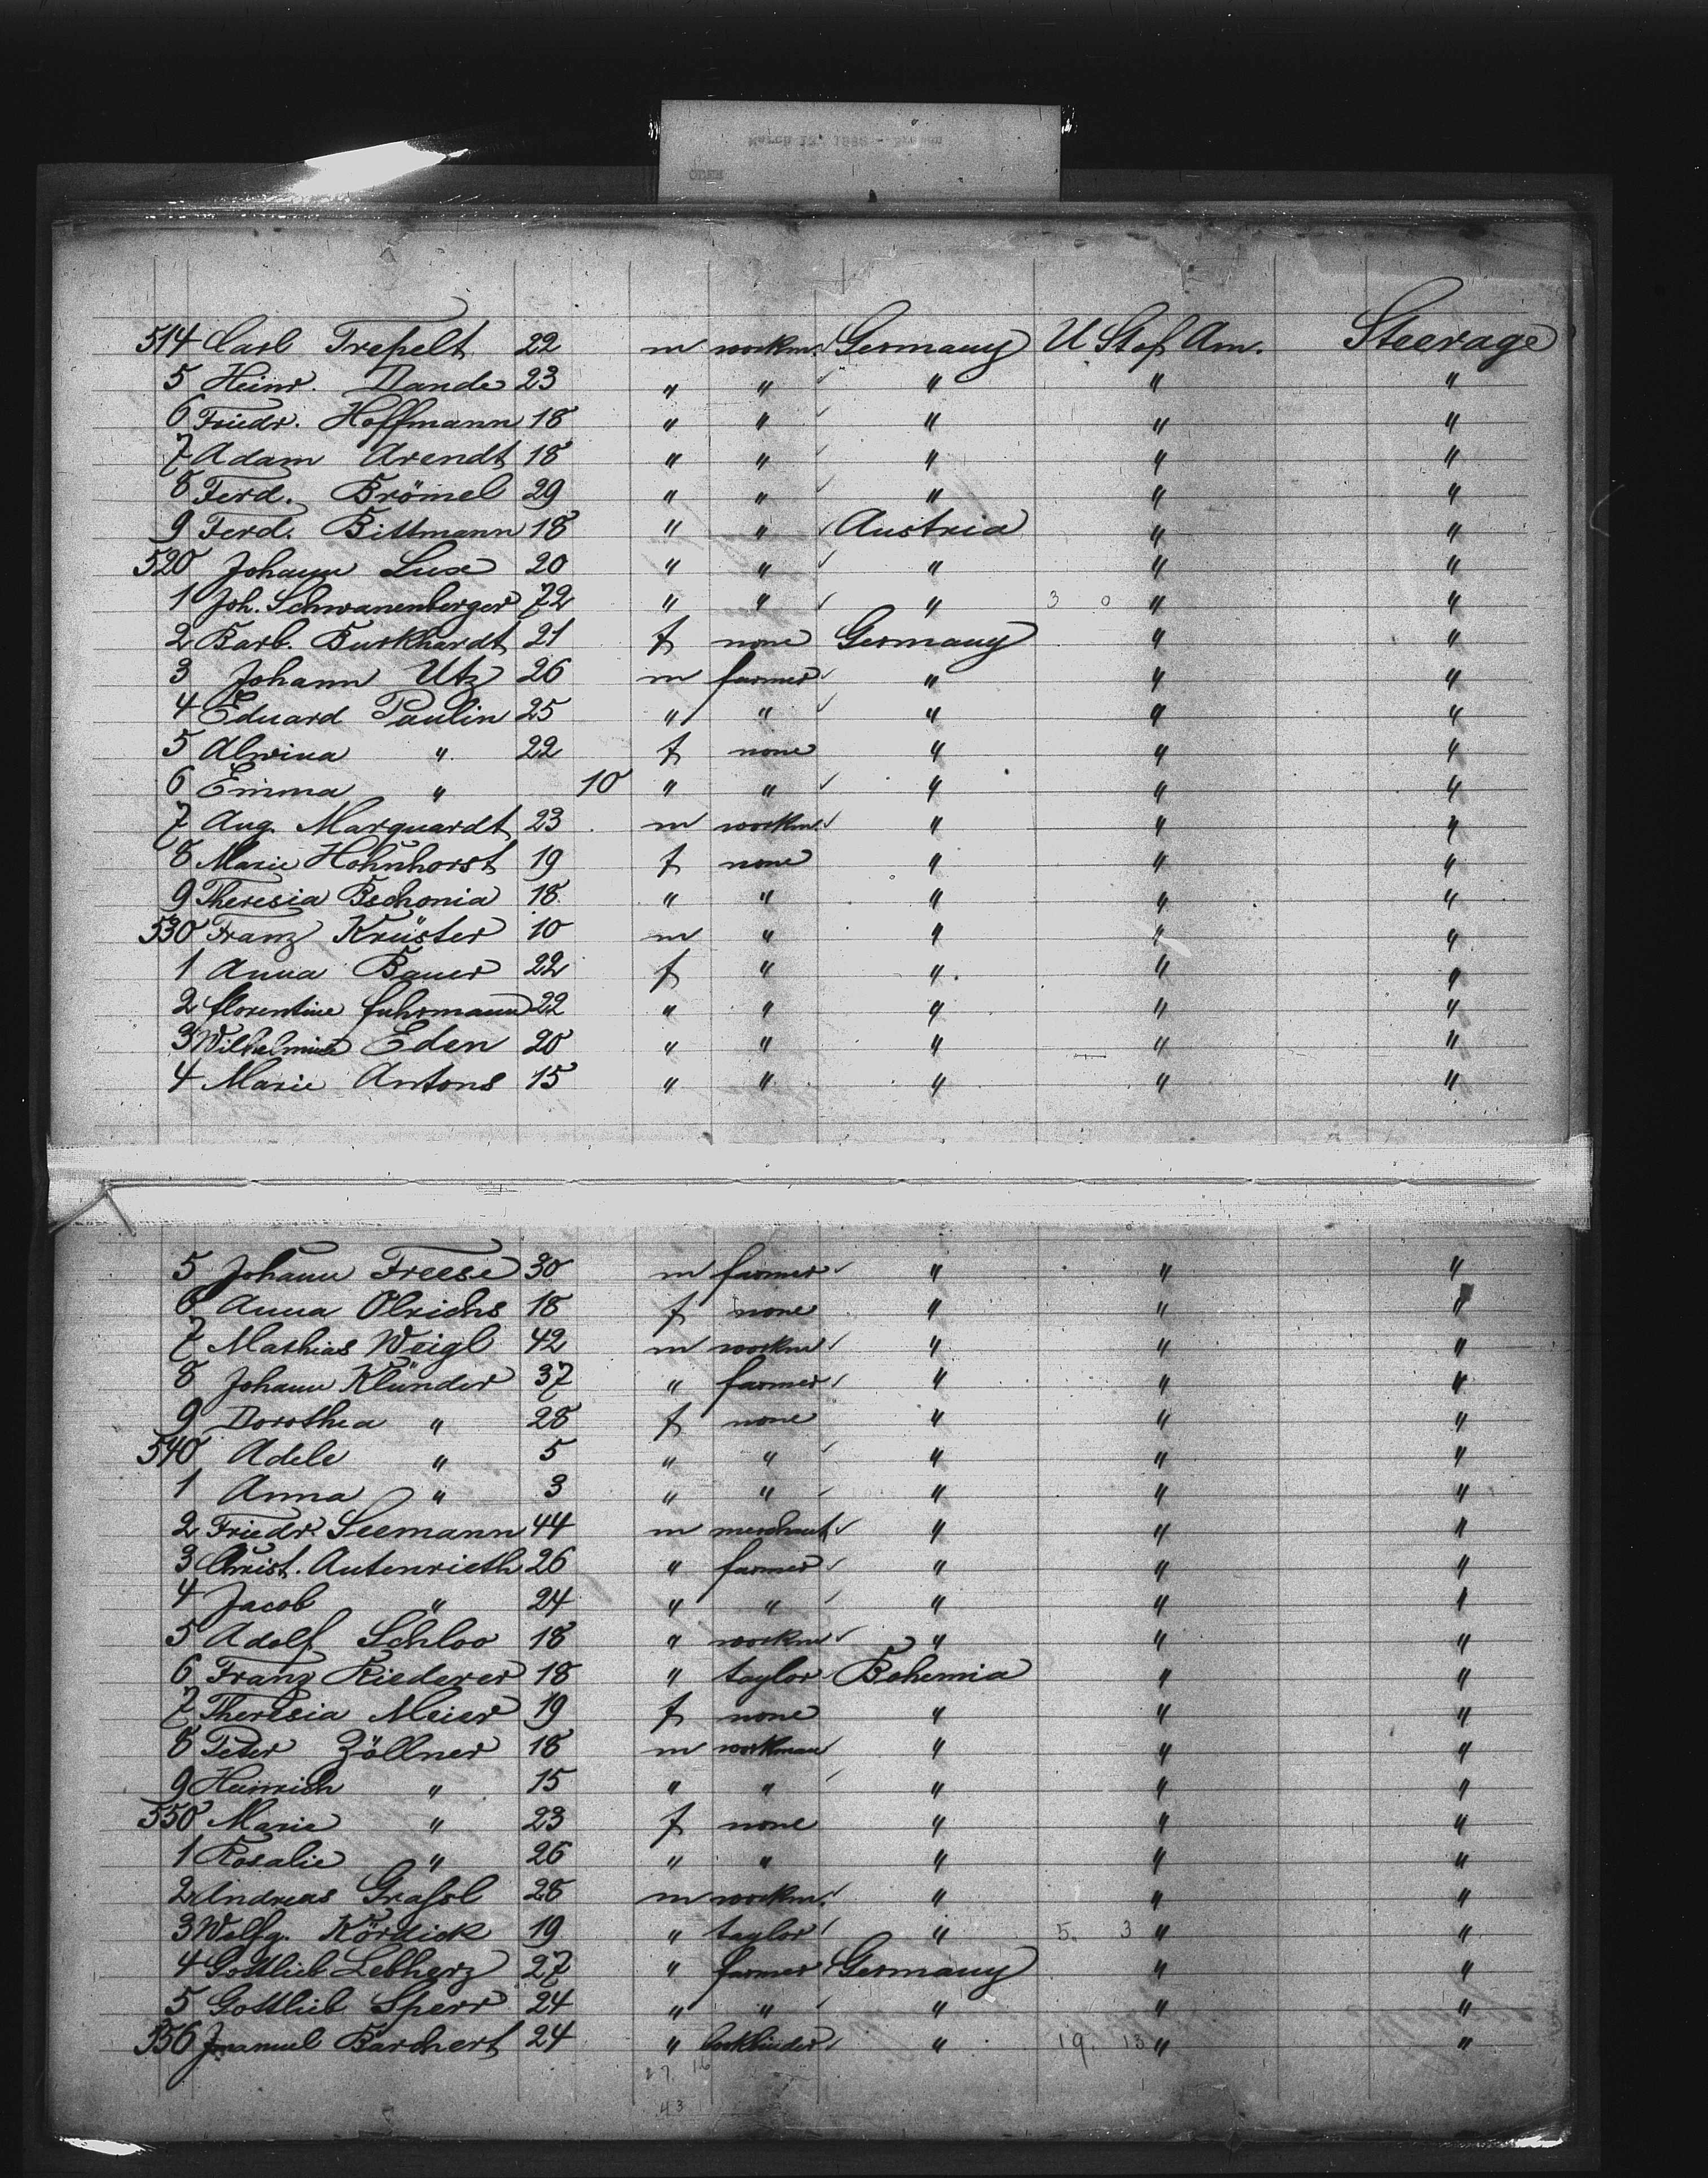 514 Carl Trepelt 22 m workm. Germany U St of Am. Steerage
5 Heinr. Dande 23 " " " " "
6 Friedr. Hoffmann 18 " " " " "
7 Adam Arendt 18 " " " " "
8 Ferd. Brömel 29 " " " " "
9 Ferd. Bittmann 18 " " Austria " "
520 Johann Lux 20 " " " " "
1 Joh. Schwanenberger 72 " " " 3 0 " "
2 Barb. Burkhardt 21 f none Germany " "
3 Johann Utz 26 m farmer " " "
4 Eduard Paulin 25 " " " " "
5 Alwina " 22 f none " " "
6 Emma " 10 " " " " "
7 Aug. Marquardt 23 m workm. " " "
8 Marie Hohnhorst 19 f none " " "
9 Theresia Bschonia 18 " " " " "
530 Franz Krüster 10 m " " " "
1 Anna Bauer 22 f " " " "
2 florentine fuhrmann 22 " " " " "
3 Wilhelmine Eden 20 " " " " "
4 Marie Antons 15 " " " " "
5 Johann Freese 30 m farmer " " "
6 Anna Olrichs 18 f none " " "
7 Mathias Weigl 42 m workm " " "
8 Johann Klünder 37 " farmer " " "
9 Dorothea " 28 f none " " "
540 Adele " 5 " " " " "
1 Anna " 3 " " " " "
2 Friedr. Seemann 44 m merchant " " "
3 Christ. Autenrieth 26 " farmer " " "
4 Jacob " 24 " " " " "
5 Adolf Schloo 18 " workm " " "
6 Franz Riederer 18 " taylor Bohemia " "
7 Theresia Meier 19 f none " " "
8 Peter Zöllner 18 m workman " " "
9 Heinrich " 15 " " " " "
550 Marie " 23 f none " " "
1 Rosalie " 26 " " " " "
2 Andreas Grassl 28 m workm. " " "
3 Wolfg. Kördick 19 " taylor " 5. 3 " "
4 Gottlieb Lebherz 27 " farmer Germany " "
5 Gottlieb Sperr 24 " " " " "
556 Imanuel Barchert 24 " bookbinder " 19. 13 " "
27. 16
43